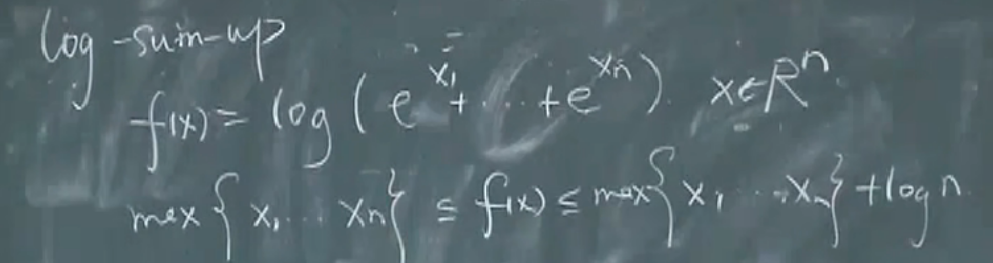 log-sum-up
f(x) = log(e^{x_1} + ... + e^{x_n}) x∈R^n.
max{x_1 ... x_n} ≤ f(x) ≤ max{x_1 ... x_n} + log n.